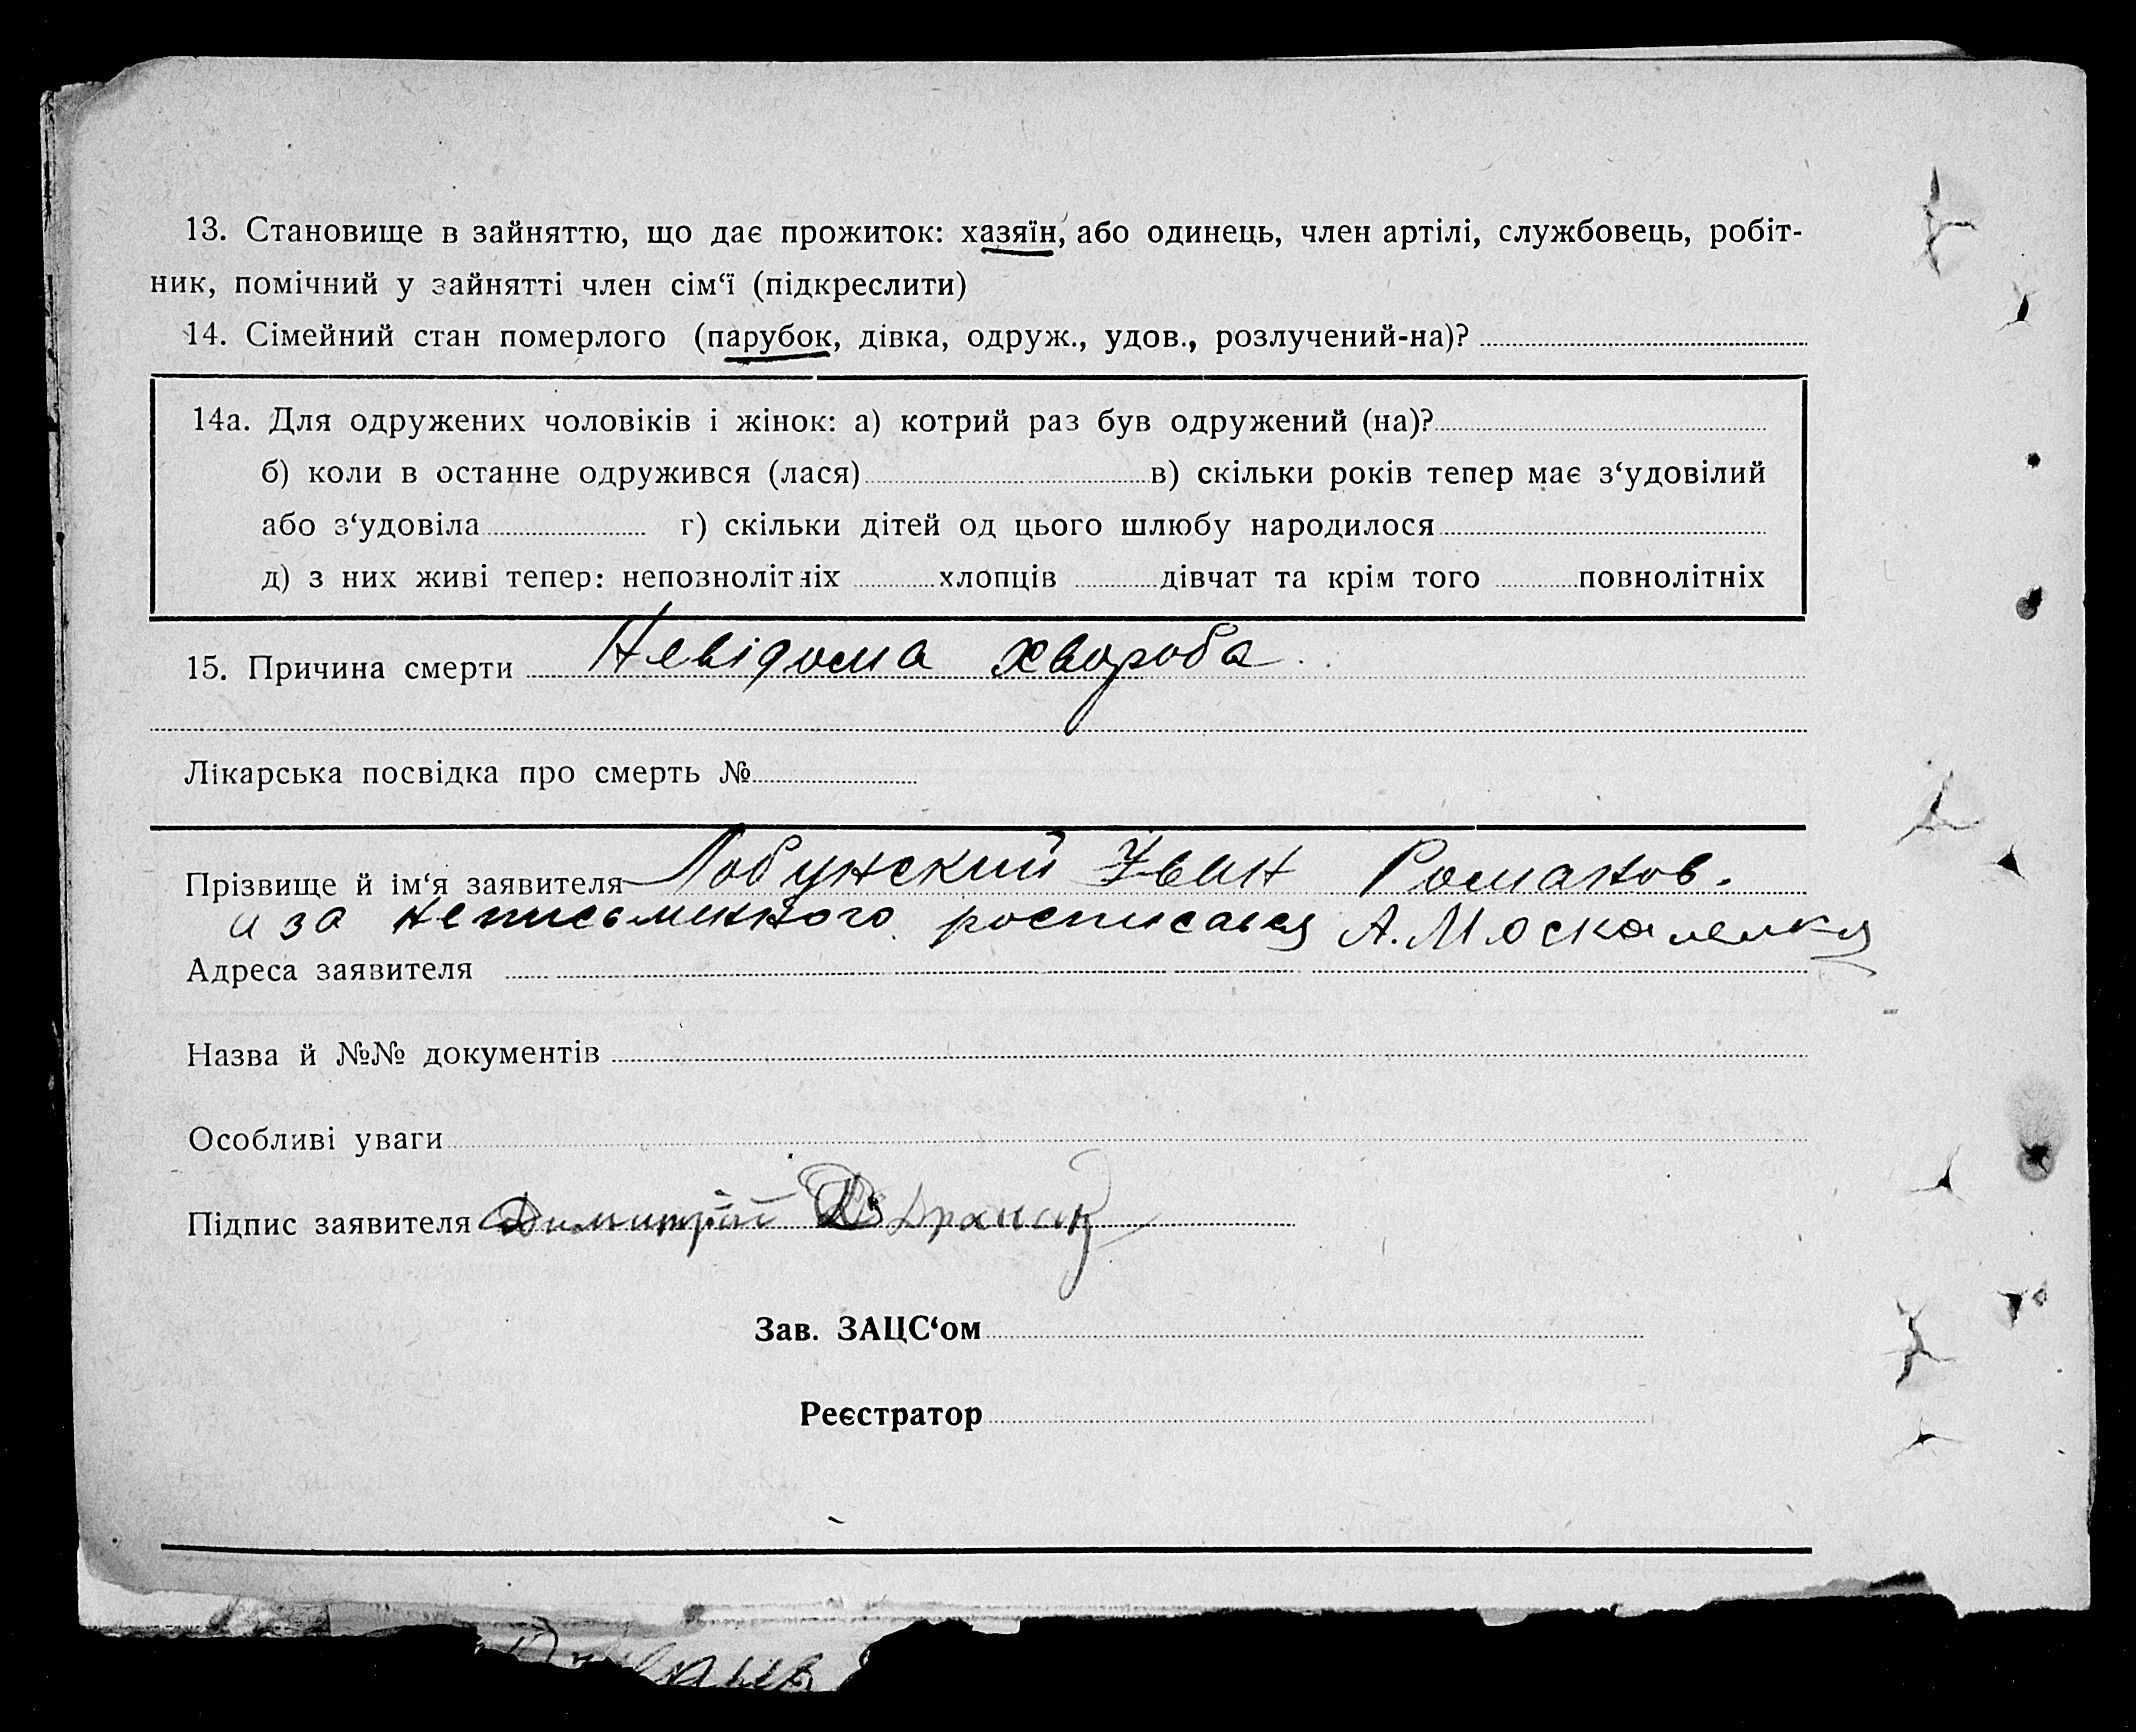 13. Становище в зайняттю, що дає прожиток: хазяїн, або одинець, член артілі, службовець, робіт-
ник, помічний у зайнятті член сім‘ї (підкреслити)
14. Сімейний стан померлого (парубок, дівка, одруж., удов., розлучений-на)?
14а. Для одружених чоловіків і жінок: а) котрий раз був одружений (на)?
б) коли в останне одружився (лася) в) скільки років тепер має з‘удовілий
або з‘удовіла г) скільки дітей од цього шлюбу народилося
д) з них живі тепер: неповнолітніх хлопців дівчат та крім того повнолітніх
15. Причина смерти Невідома хвороба
Лікарська посвідка про смерть №
Прізвище й ім‘я заявителя Лобунский Іван Романов.
а за неписьменного росписався А. Москаленко
Адреса заявителя
Назва й №№ документів
Особливі уваги
Підпис заявителя Димитрій
Зав. ЗАЦС‘ом
Реєстратор